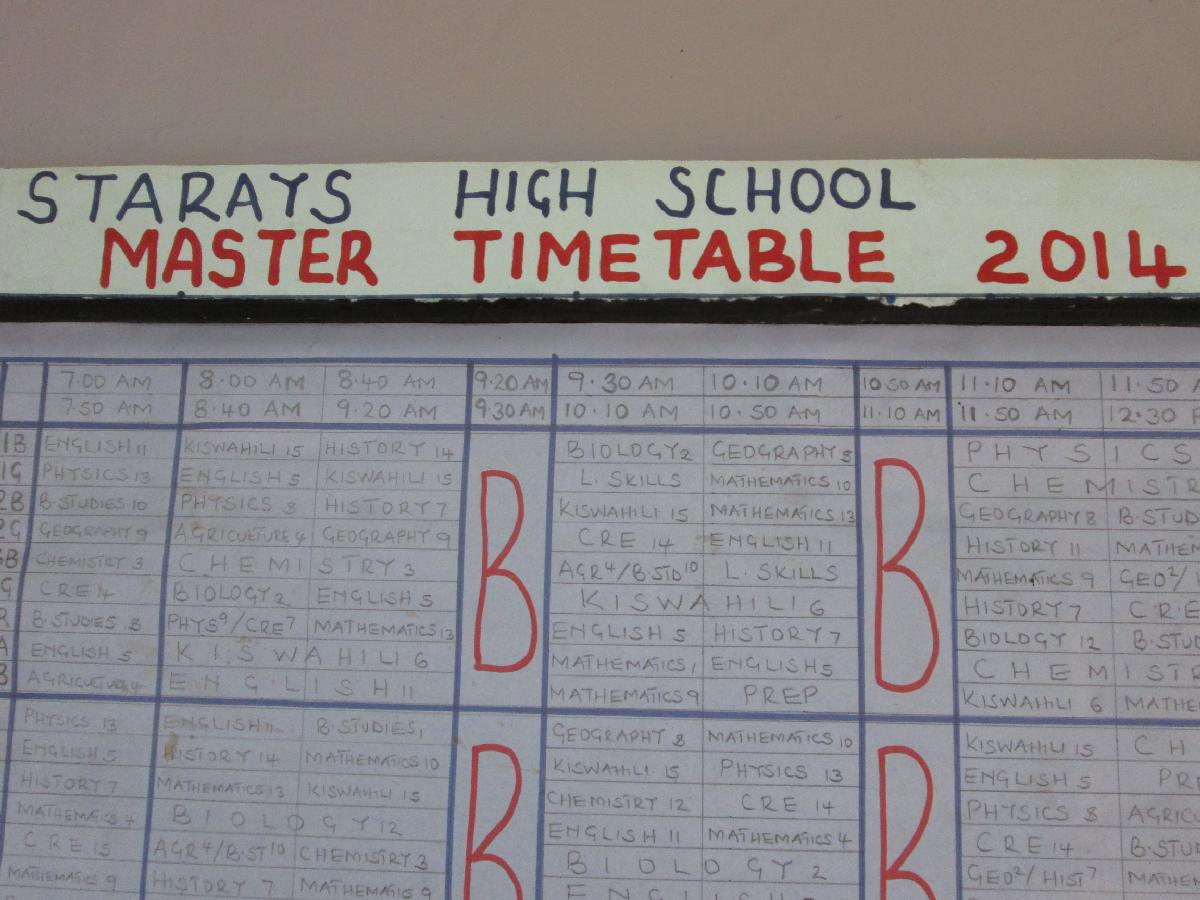 STARAYS HIGH SCHOOL
MASTER TIMETABLE 2014
7.00 AM 8.00 AM 8.40 AM 9.20 AM 9.30 AM 10.10 AM 10.50 AM 11.10 AM 11.50 A
7.50 AM 8.40 AM 9.20 AM 9.30 AM 10.10 AM 10.50 AM 11.10 AM 11.50 AM 12.30 P
1B ENGLISH 11 KISWAHILI 15 HISTORY 14 BIOLOGY 2 GEOGRAPHY 8 PHYSICS
1G PHYSICS 13 ENGLISH 5 KISWAHILI 15 L. SKILLS MATHEMATICS 10 CHEMISTR
2B B.STUDIES 10 PHYSICS 8 HISTORY 7 KISWAHILI 15 MATHEMATICS 13 GEOGRAPHY 8 B.STUD
2G GEOGRAPHY 9 AGRICULTURE 4 GEOGRAPHY 9 CRE 14 ENGLISH 11 HISTORY 11 MATHEM
3B CHEMISTRY 3 CHEMISTRY 3 AGR4/B.STD10 L. SKILLS MATHEMATICS 9 GEO2/
G CRE 4 BIOLOGY 2 ENGLISH 5 KISWAHILI 6 HISTORY 7 CRE
R B.STUDIES 8 PHYS9/CRE7 MATHEMATICS 13 ENGLISH 5 HISTORY 7 BIOLOGY 12 B.STU
A ENGLISH 5 KISWAHILI 6 MATHEMATICS 1 ENGLISH 5 CHEMISTR
B AGRICULTURE 4 ENGLISH 11 MATHEMATICS 9 PREP KISWAHILI 6 MATHE
B B
PHYSICS 13 ENGLISH 11 B.STUDIES 1 GEOGRAPHY 8 MATHEMATICS 10 KISWAHILI 15 CH
ENGLISH 5 HISTORY 14 MATHEMATICS 10 KISWAHILI 15 PHYSICS 13 ENGLISH 5 PR
HISTORY 7 MATHEMATICS 13 KISWAHILI 15 CHEMISTRY 12 CRE 14 PHYSICS 8 AGRIC
MATHEMATICS 4 BIOLOGY 12 ENGLISH 11 MATHEMATICS 4 CRE 14 B.STU
CRE 15 AGR4/B.ST10 CHEMISTRY 3 BIOLOGY 2 GEO2/HIST7 MATHEM
MATHEMATICS 9 HISTORY 7 MATHEMATICS 9 ENGLISH
B B